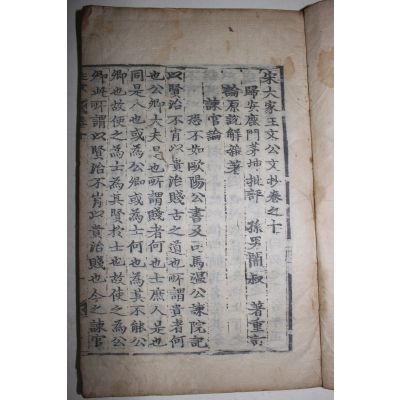 宋大家王文公文抄卷之十
歸安鹿門茅坤批評　孫男闇叔　著重訂
論原說解雜著
諫官論
恐不如歐陽公書及司馬溫公諫院記
以賢治不肖以貴治賤古之道也所謂貴者何
也公卿大夫是也所謂賤者何也士庶人是也
同是人也或爲公卿或爲士何也爲其不能公
卿也故使之爲士爲其賢於士也故使之爲公
卿此所謂以賢治不肖以貴治賤也今之諫官